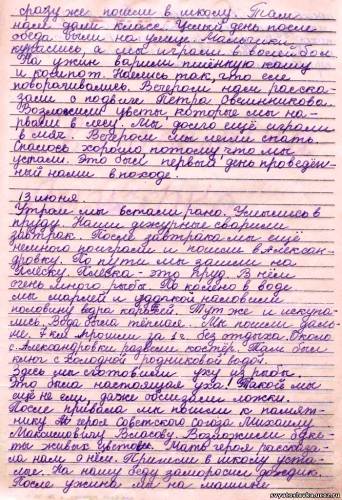 сразу же пошли в школу. Там
нам дали класс. Целый день после
обеда были на улице. Мальчики
купались, а мы играли в волейбол
На ужин варили пшённую кашу
и компот. Наелись так, что еле
поворачивались. Вечером нам расска-
зали о подвиге Петра Овсянникова.
Возложили цветы, которые мы на-
рвали в лесу. Мы долго ещё играли
в мяч. Вечером мы легли спать.
Спалось хорошо, потому что мы
устали. Это был первый день проведён-
ный нами в походе.
13 июня.
Утром мы встали рано. Умылись в
пруду. Наши дежурные сварили
завтрак. После завтрака мы ещё
немного поиграли и пошли в Алексан-
дровку. По пути мы зашли на
Плёску. Плёска - это пруд. В нём
очень много рыбы. По колено в воде
мы марлей и удочкой наловили
половину ведра карасей. Тут же и искупа-
лись. Вода была тёплая. Мы пошли даль-
ше. 7 км прошли за 1 ч. без отдыха. Около
с. Александровки развели костёр. Там был
ключ с холодной родниковой водой.
Здесь мы сготовили уху из рыбы.
Это была настоящая уха! Такой мы
ещё не ели, даже облизали ложки.
После привала мы пошли к памят-
нику героя Советского союза Михаилу
Максимовичу Власову. Возложили буке-
ты живых цветов. Мать героя рассказа-
ла нам о нём. Пришли в школу уста-
лые. На нашу беду заморосил дождик.
После ужина мы на машине